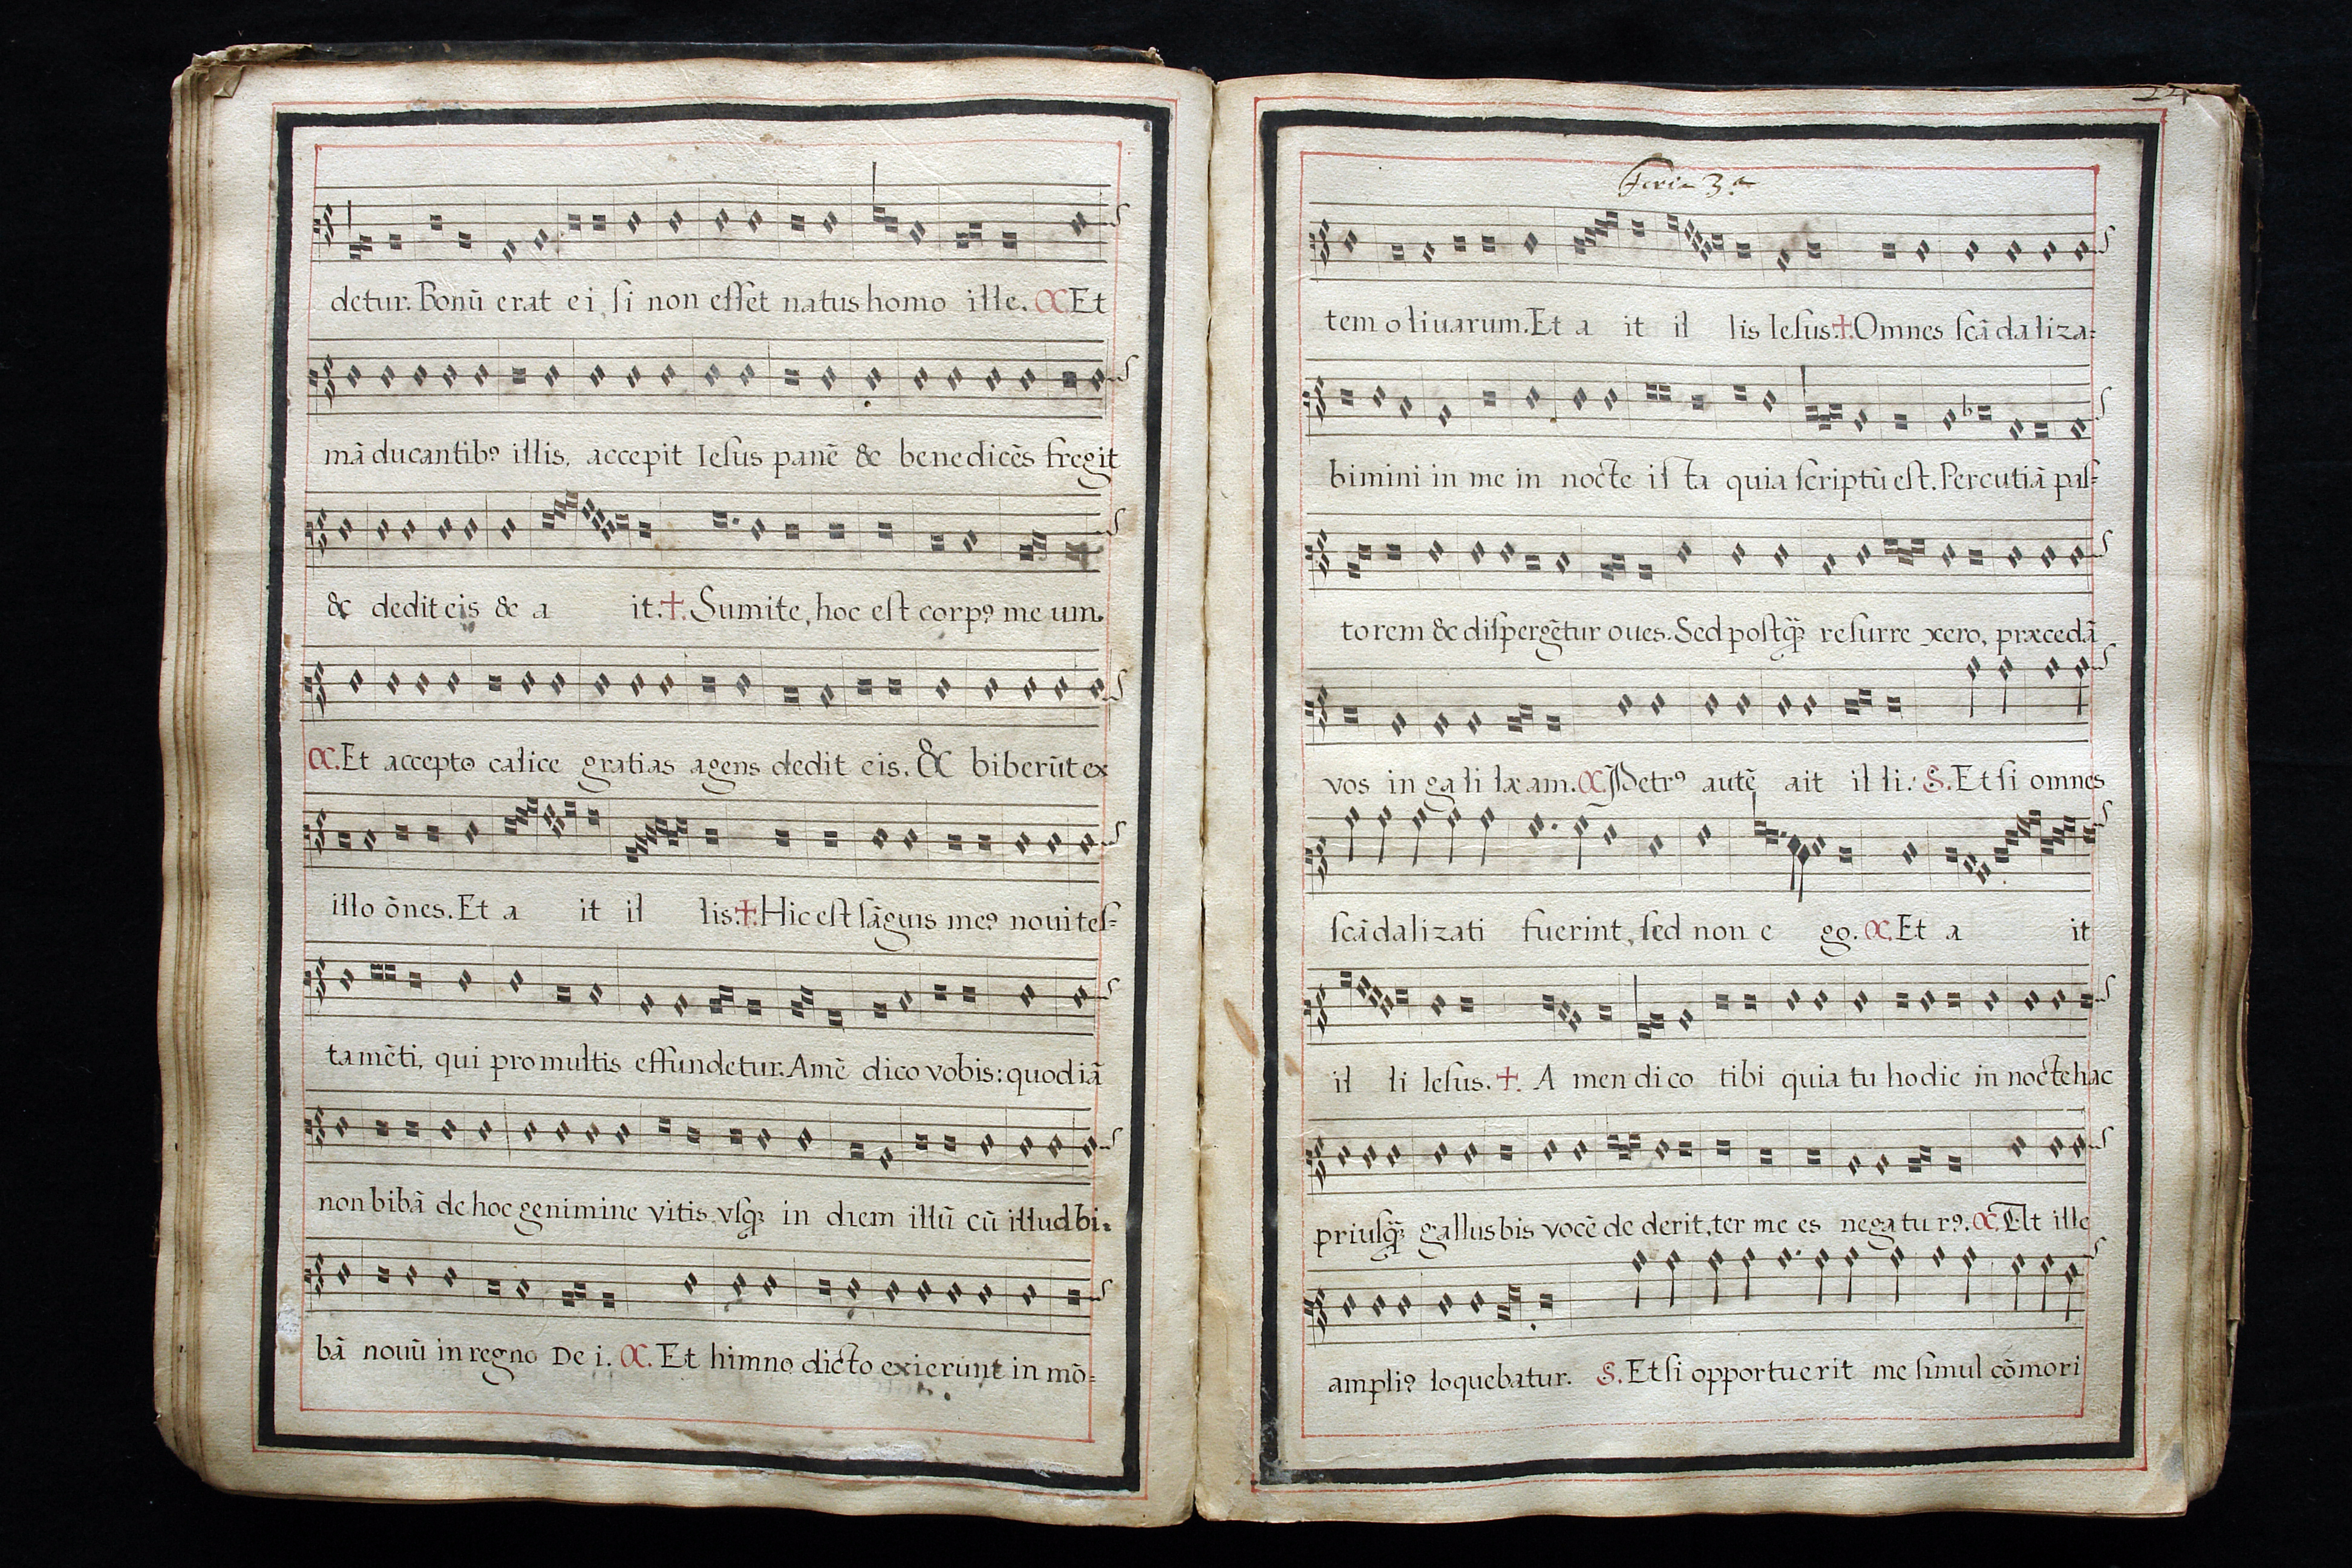 detur. Bonū erat ei, ſi non eſſet natus homo ille. C. Et
mā ducantibꝰ illis, accepit Ieſus panē & benedicēs fregit
& dedit eis & a it. ✝. Sumite, hoc eſt corpꝰ me um.
C. Et accepto calice gratias agens dedit eis. & biberūt ex
illo ōnes. Et a it il lis. ✝. Hic eſt ſāguis meꝰ noui teſ=
tamēti, qui pro multis effundetur. Amē dico vobis: quod iā
non bibā de hoc genimine vitis vſq; in diem illū cū illud bi.
bā nouū in regno De i. C. Et himno dicto exierunt in mō=
Feria 3.ª
tem oliuarum. Et a it il lis Ieſus. ✝. Omnes ſcā daliza=
bimini in me in nocte iſ ta quia ſcriptū eſt. Percutiā paſ=
torem & diſpergētur oues. Sed poſtq̄; reſurre xero, præcedā
vos in gali læam. C. Petrꝰ autē ait il li. S. Et ſi omnes
ſcādalizati fuerint, ſed non e go. C. Et a it
il li Ieſus. ✝. A men di co tibi quia tu hodie in nocte hac
priuſq̄; gallus bis vocē de derit, ter me es negatu rꝰ. C. Et ille
ampliꝰ loquebatur. S. Et ſi opportuerit me ſimul cōmori